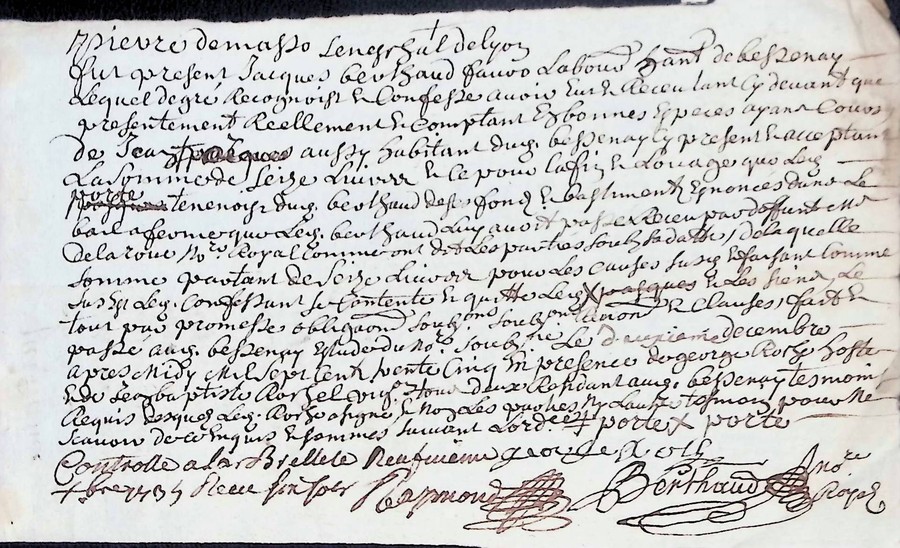 Pierre demasso senechal delyon
fut present Jacques berthaud fauro Labour hant de bessenay
Lequel degré Recognoist & Confesse avoir eu & Receu tant cy devant que
presentement Reellement & Comptant En bonnes Especes ayant Cours
de Jean aussy habitant dud. bessenay cy present & acceptant
La somme de seize Livres & ce pour la fin & Louage que Led.
porte tenoit dud. berthaud des fond & bastiments Enoncés dans Le
bail a ferme que Led. berthaud Luy avoit passé Receu par deffunt Me
delaroue Nore Royal Comme ont dit Les parties soubs sa datte, de laquelle
somme partant de seize Livres pour Les causes susd. & faisant comme
susd. Led. Confessant se Contente & quitte Led. X & Les siens Le
tout par promesse obligaons soubz.ons & Clauses, fait &
passé aud. bessenay Estude du Nore soubz.né Le deuxieme decembre
apres Midy Mil sept cent trente Cinq En presence de george Roch hoste
& de Jean baptiste tous deux Residant aud. bessenay tesmoins
Requis Lesquels Led. Roch a signé & Non Les parties Ny L'autre tesmoin pour Ne
scavoir de ce Enquis & sommés suivant L'ordce porte X porte
Controllé a La Bresle Le Neufvieme george Roch
xbre 1735 Receu six sols Raymond Berthaud nore
Royal